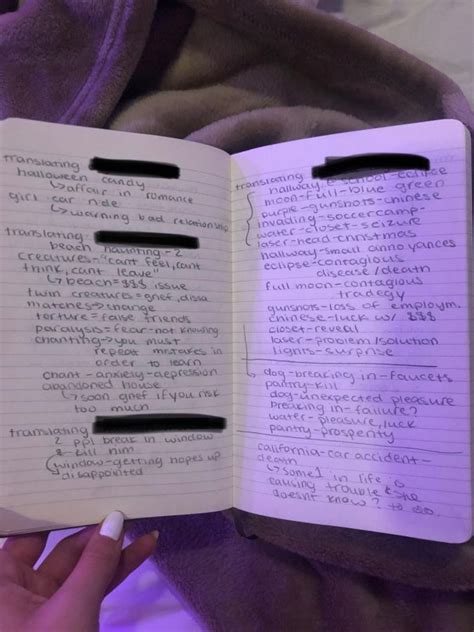 translating
halloween candy
↳affair in romance
girl car ride
↳warning bad relationship
translating-
beach haunting-2
creatures-"cant feel, cant
think, cant leave"
↳beach=$$$ issue
twin creatures=grief, dissa.
matches→change
torture=false friends
paralysis=fear-not knowing
chanting→you must
repeat mistakes in
order to learn
chant-anxiety-depression
abandoned house
↳soon grief if you risk
too much
translating
2 ppl break in window
& kill him
window-getting hopes up
disappointed
translating
hallway, school-eclipse
moon-full-blue green
purple-gunshots-chinese
invading-soccercamp-
water-closet-seizure
laser-head-christmas
hallway-small annoyances
eclipse-contagious
disease/death
full moon-contagious
tradegy
gunshots-loss of employm.
chinese-luck w/ $$$
closet-reveal
laser-problem/solution
lights-surprise
dog-breaking in-faucets
pantry-kill
dog-unexpected pleasure
breaking in-failure?
water-pleasure, luck
pantry-prosperity
california-car accident-
death
↳some1 in life is
causing trouble & she
doesnt know? to do